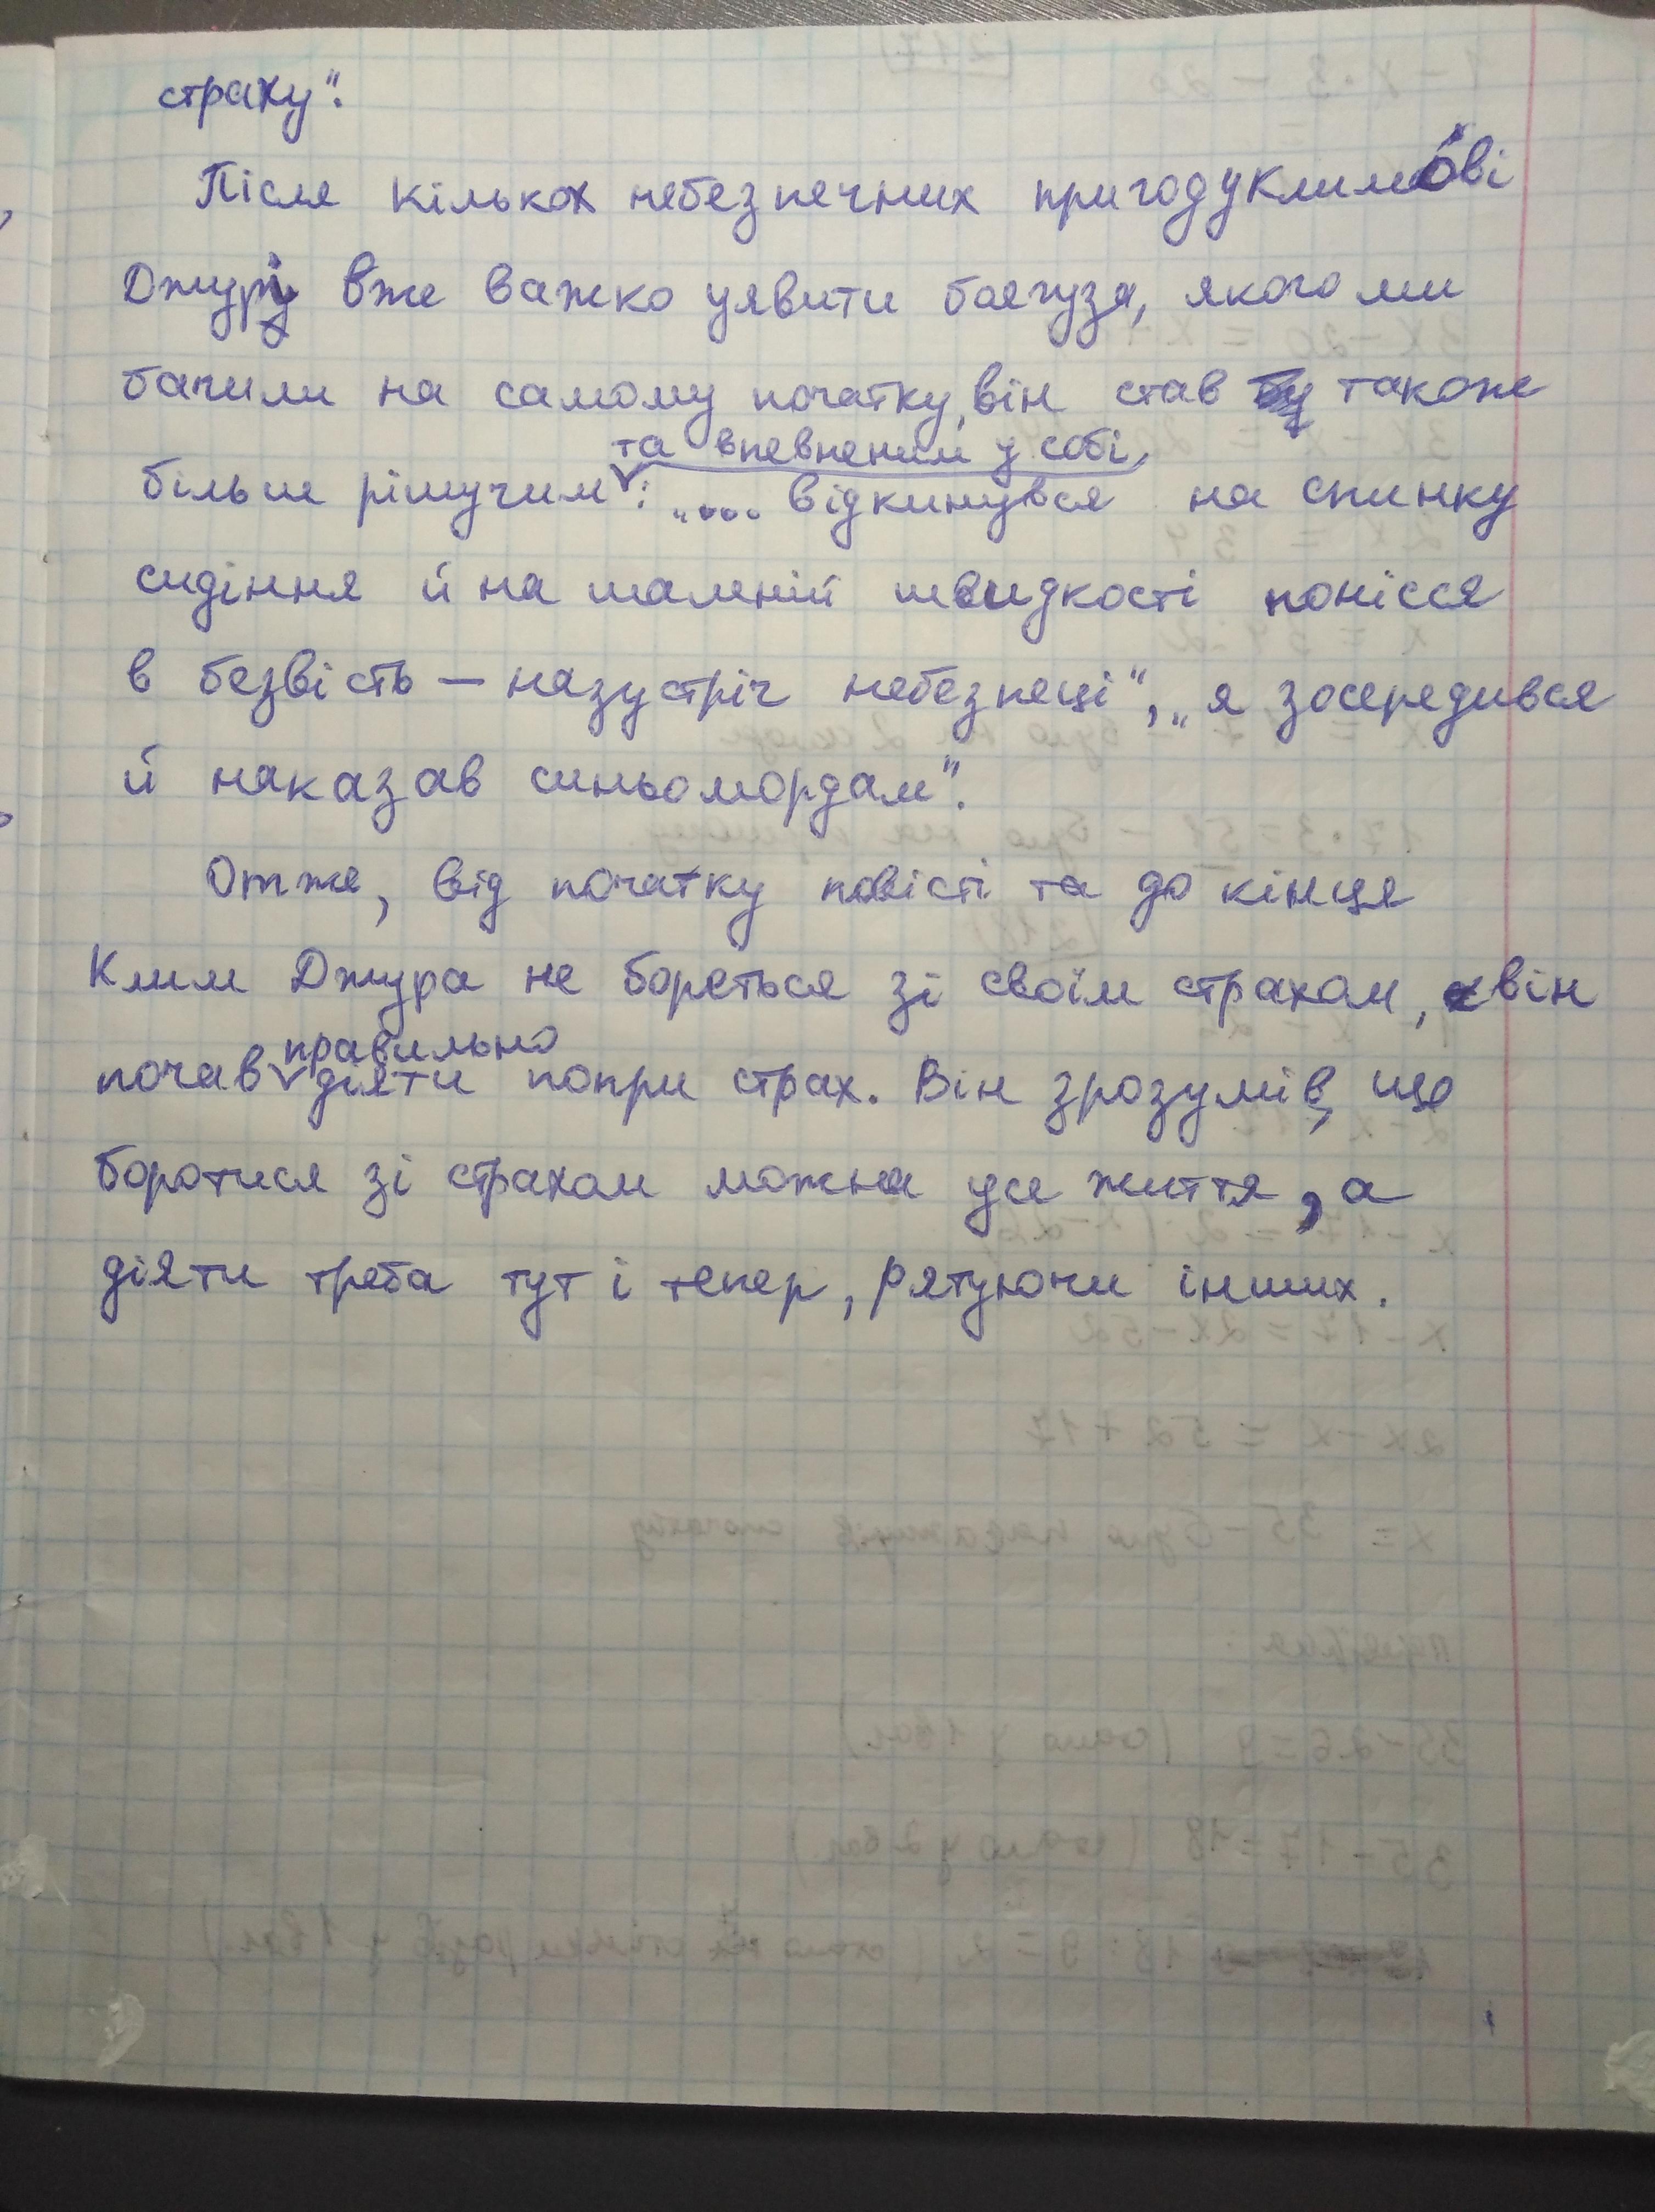 страху".
Після кількох небезпечних пригод у Климові
Джурі вже важко уявити боягуза, якого ми
бачили на самому початку, він став також
та впевненим у собі,
більш рішучим: „.... відкинувся на спинку
сидіння й на шаленій швидкості понісся
в безвість — назустріч небезпеці", „я зосередився
й наказав синьомордам".
Отже, від початку повісті та до кінця
Клим Джура не бореться зі своїм страхом, він
правильно
почав діяти попри страх. Він зрозумів, що
боротися зі страхом можна усе життя, а
діяти треба тут і тепер, рятуючи інших.